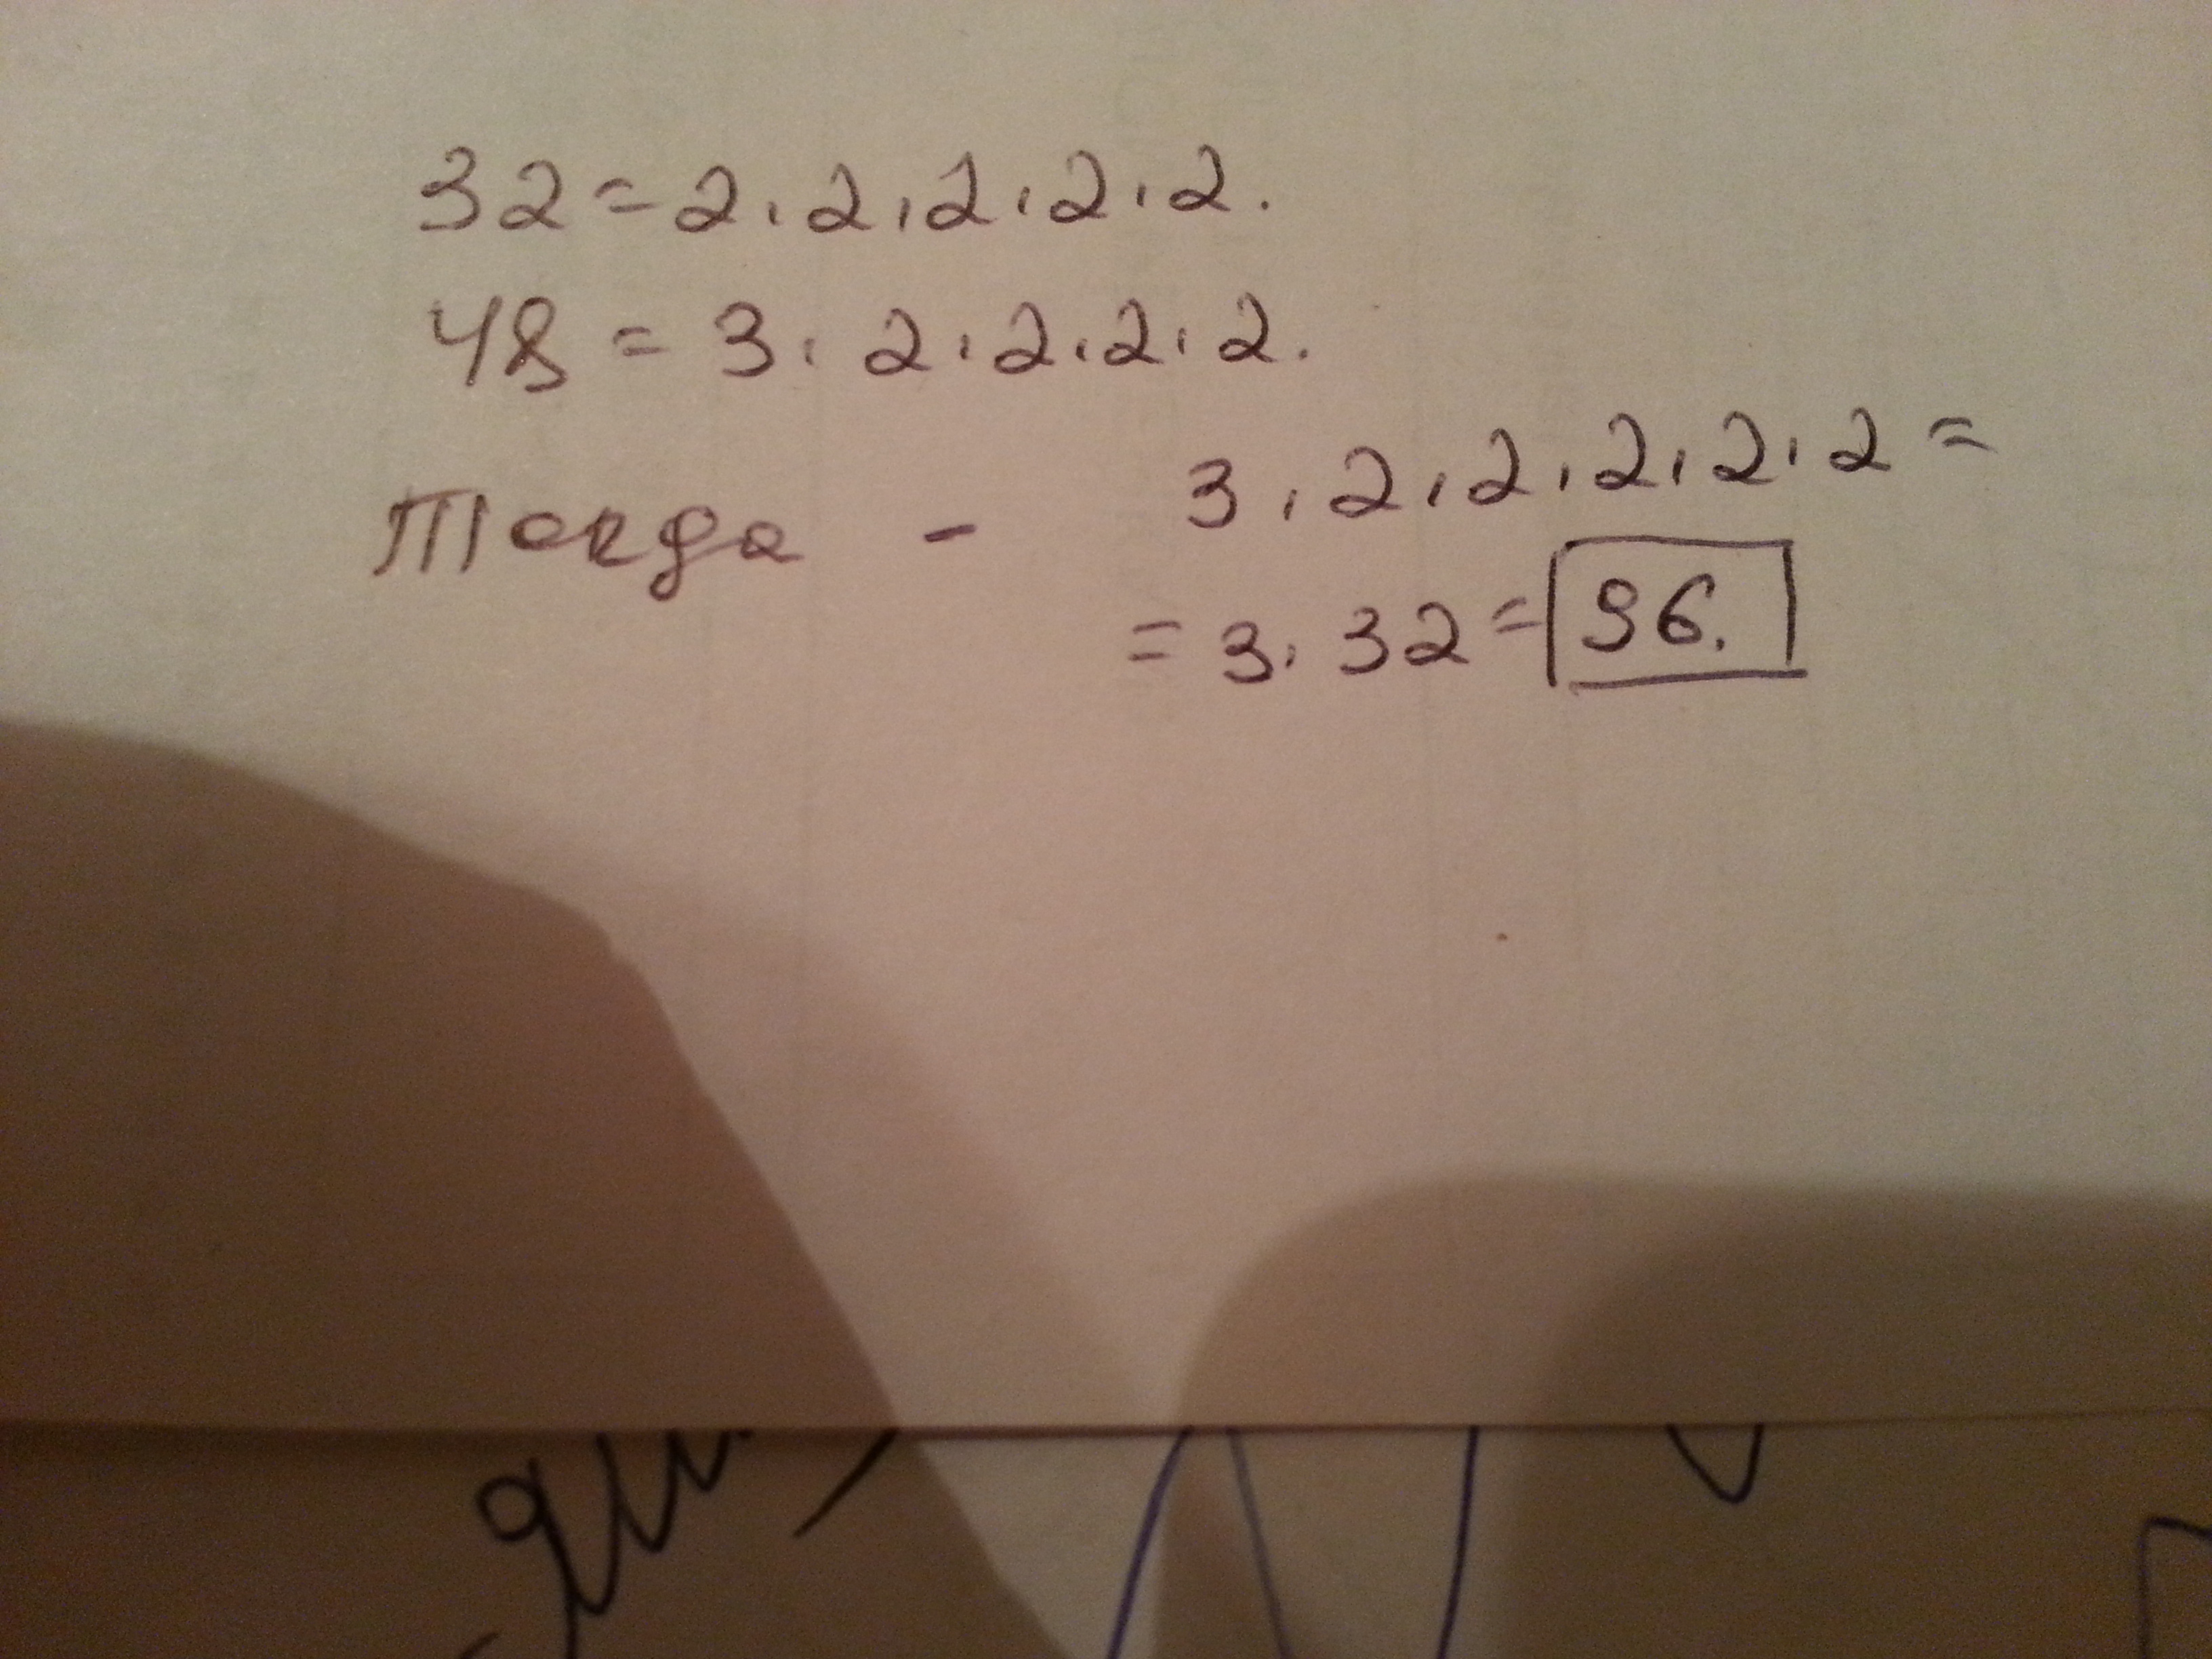 32 = 2 · 2 · 2 · 2 · 2.
48 = 3 · 2 · 2 · 2 · 2.
Тогда - 3 · 2 · 2 · 2 · 2 · 2 =
= 3 · 32 = 96.